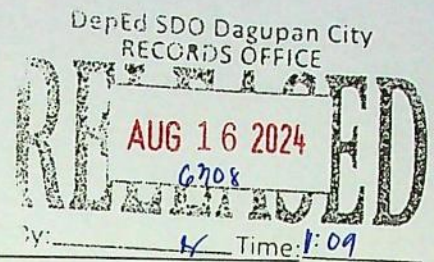 DepEd SDO Dagupan City
RECORDS OFFICE
RELEASED
AUG 16 2024
6708
By: Time: 1:09